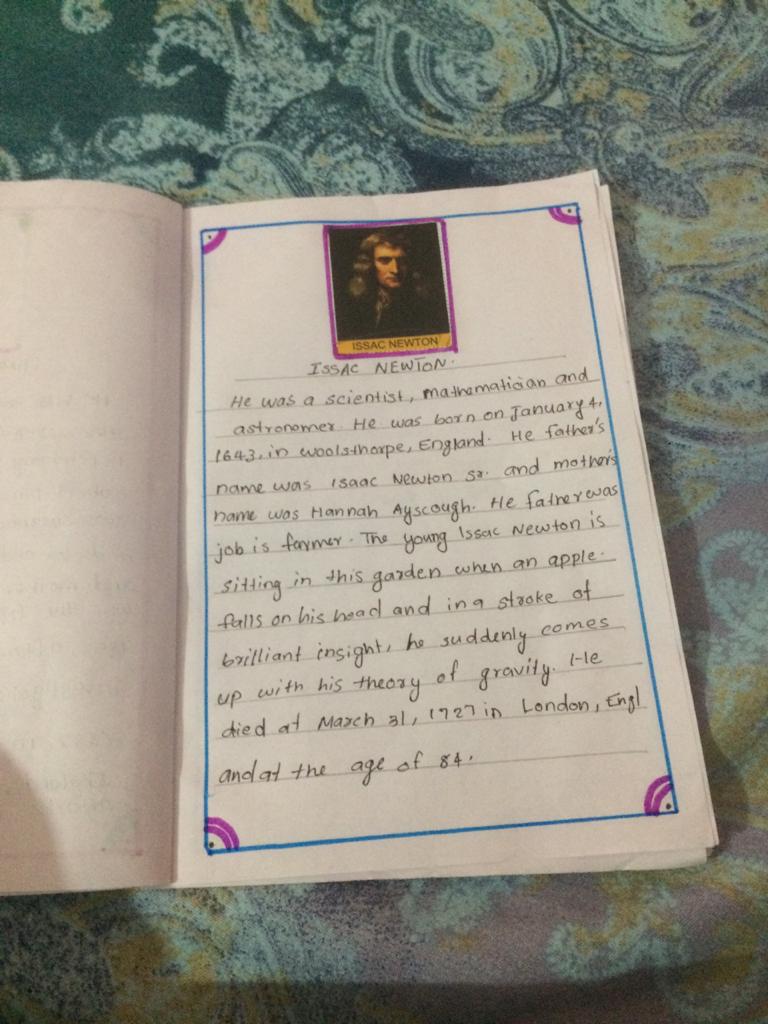 ISSAC NEWTON
ISSAC NEWTON.
He was a scientist, mathematician and
astronomer. He was born on January 4,
1643, in woolsthorpe, England. He father's
name was Isaac Newton Sr. and mother's
name was Hannah Ayscough. He father was
job is farmer. The young Issac Newton is
sitting in this garden when an apple.
falls on his head and in a stroke of
brilliant insight, he suddenly comes
up with his theory of gravity. He
died at March 31, 1727 in London, Engl
and at the age of 84.